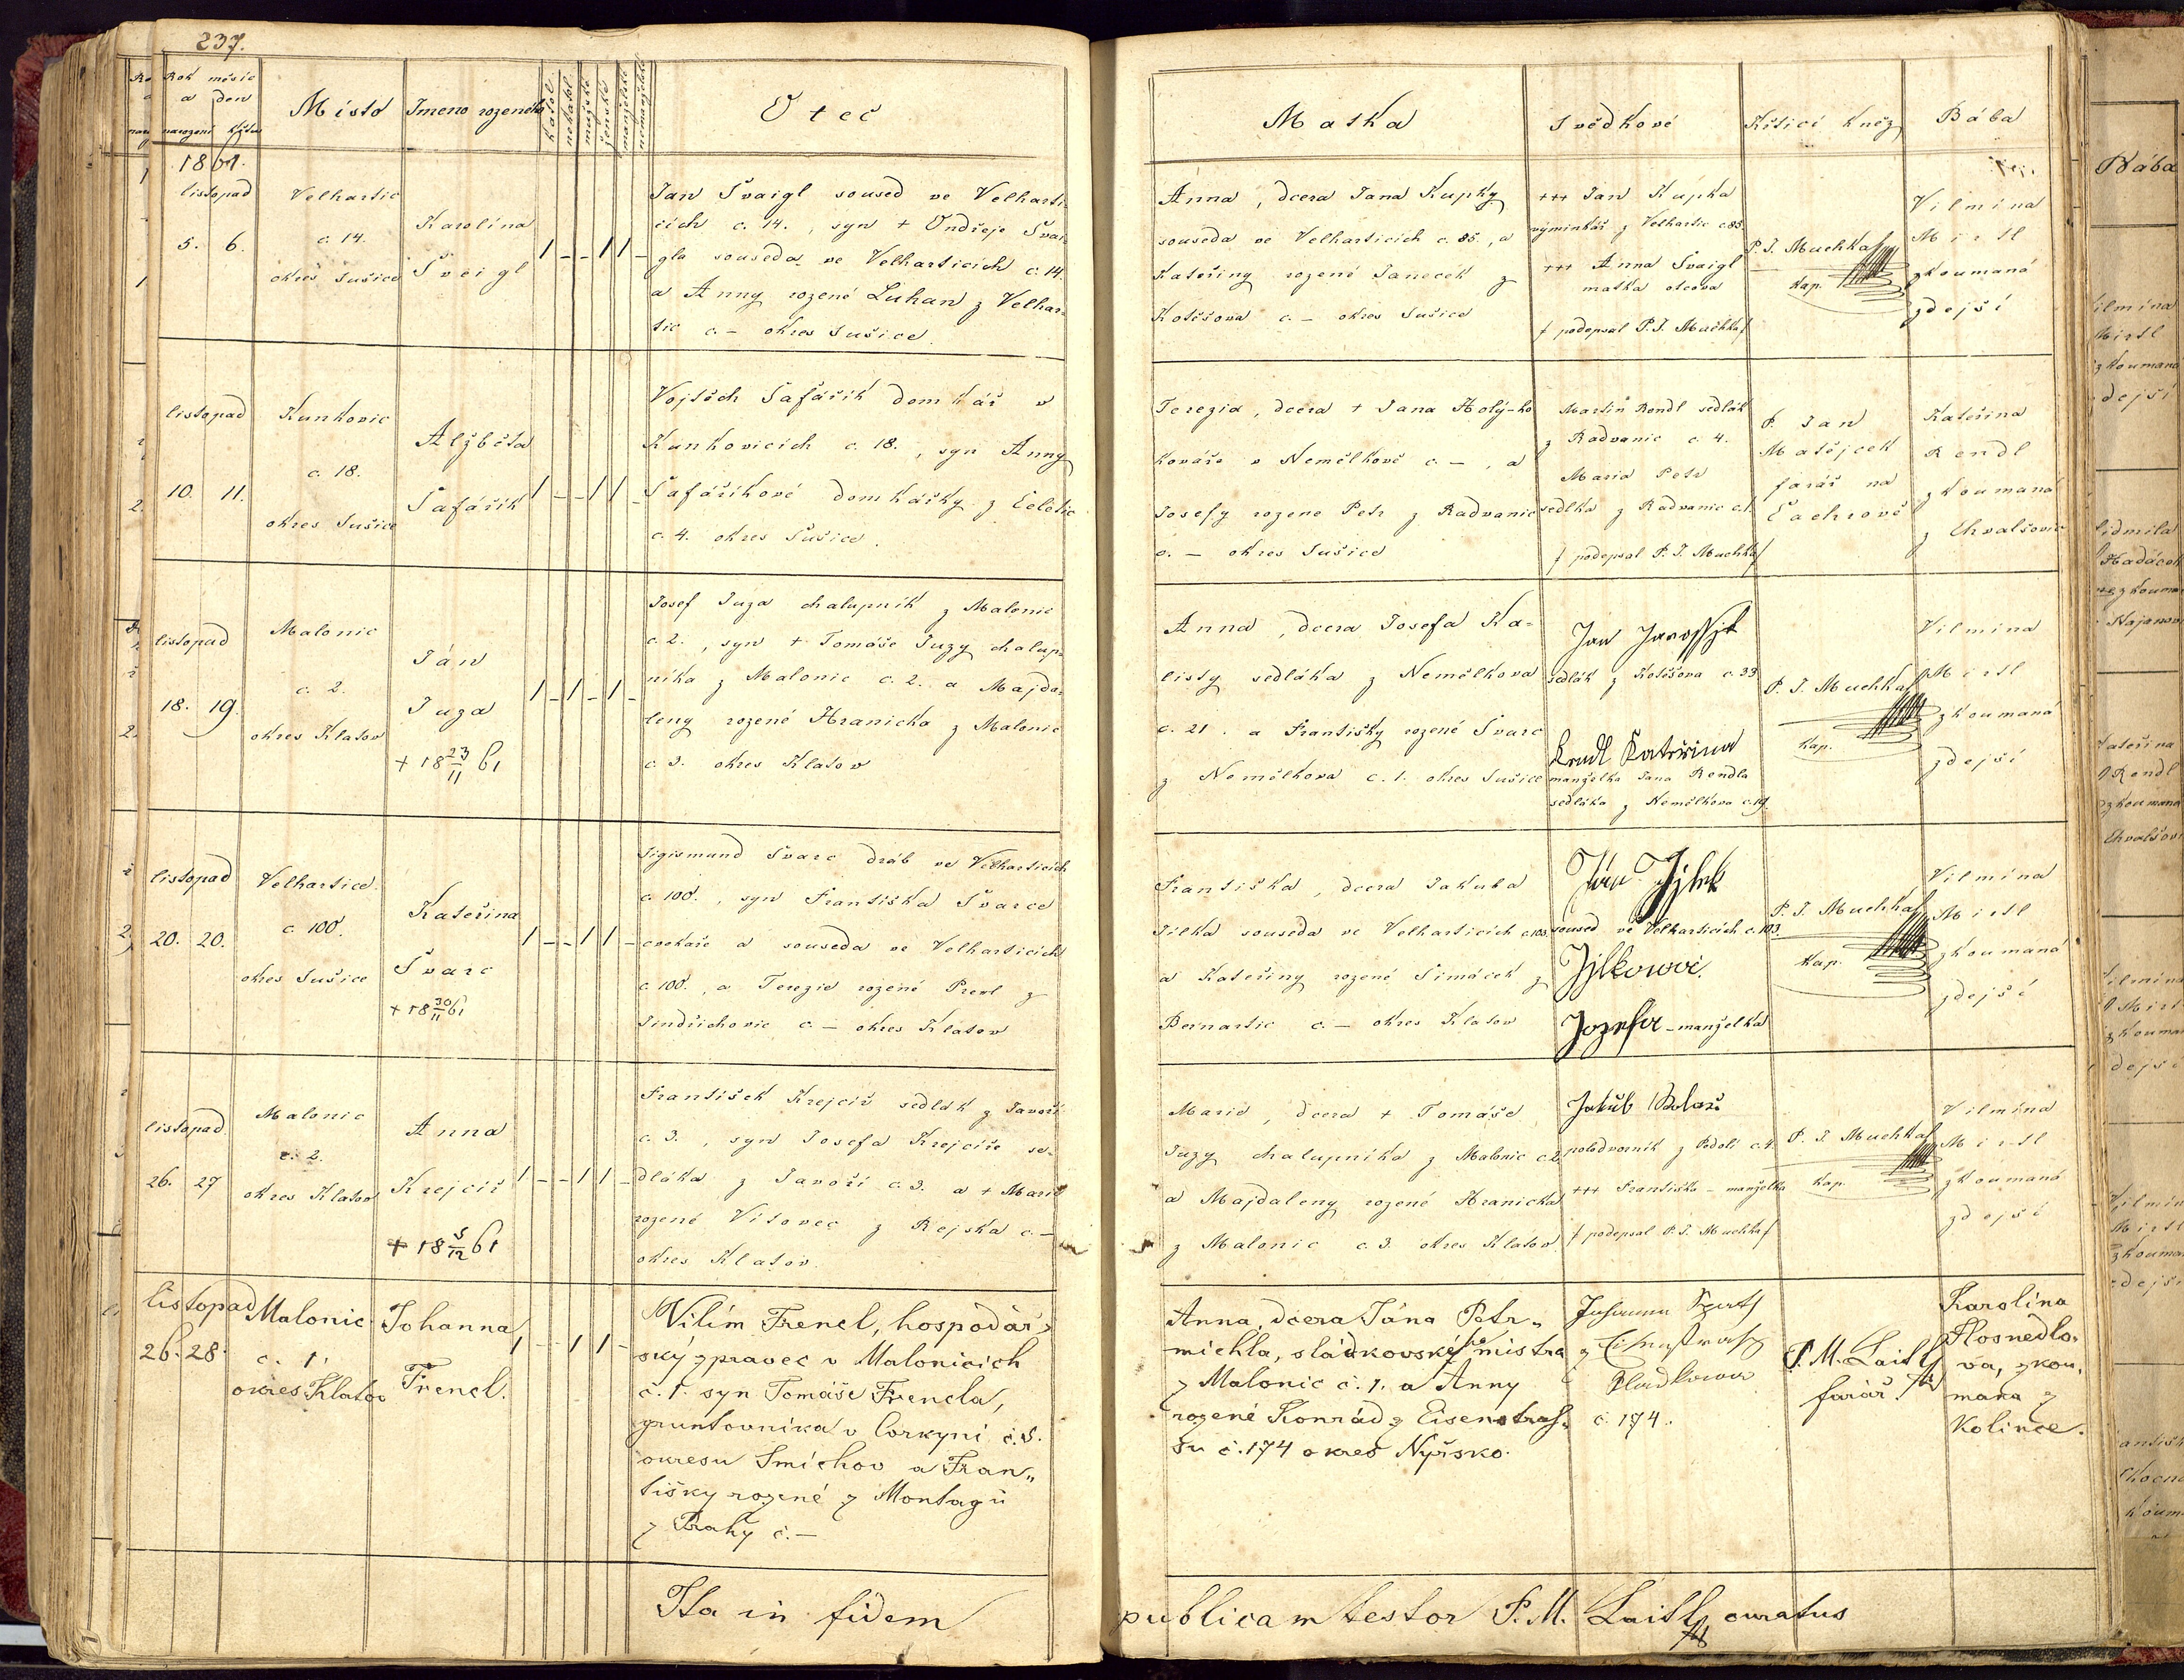 237.
Rok měsíc
a den
narození Křtu
Místo
Jmeno rozeného
Katol
nekatol
mužské
ženské
manželské
nemanželské
Oteč
Matka
Svědkové
Křtící kněz
Bába
1861.
listopad
5. 6.
Velhartic
č. 14.
okres Sušice
Karolína
Šveigl
1 – – 1 1 –
Jan Švaigl soused ve Velharti-
cích č. 14., syn + Ondřeje Švai-
gla souseda ve Velharticích č. 14.
a Anny rozené Luhan z Velhar-
tic č. – okres Sušice.
Anna, dcera Jana Kupky
souseda ve Velharticích č. 85., a
Kateřiny rozené Janeček z
Kotěšova č. – okres Sušice
+++ Jan Kupka
výminkář z Velhartic č. 85.
+++ Anna Švaigl
matka otcova
/ podepsal P. J. Muchka /
P. J. Muchka
Kap.
Vilmína
Mirtl
zkoumaná
zdejší
listopad
10. 11.
Kunkovic
č. 18.
okres Sušice
Alžběta
Šafářík
1 – – 1 1 –
Vojtěch Šafářík domkář v
Kunkovicích č. 18., syn Anny
Šafáříkové domkářky z Čeletic
č. 4. okres Sušice.
Terezia, dcera + Jana Holý-ho
kováře v Nemělkově č. –, a
Josefy rozené Petr z Radvanic
č. – okres Sušice
Martin Rendl sedlák
z Radvanic č. 4.
Maria Petr
sedlka z Radvanic č. 1.
/ podepsal P. J. Muchka /
P. Jan
Matějček
farář na
Čachrově
Kateřina
Rendl
zkoumaná
z Chvalšovic
listopad
18. 19.
Malonic
č. 2.
okres Klatov
Ján
Juza
+ 18 23/11 61
1 – 1 – 1 –
Josef Juza chalupník z Malonic
č. 2., syn + Tomáše Juzy chalup-
níka z Malonic č. 2. a Majda-
leny rozené Hranicka z Malonic
č. 3. okres Klatov
Anna, dcera Josefa Ka-
listy sedláka z Nemělkova
č. 21. a Františky rozené Švarc
z Nemělkova č. 1. okres Sušice
Jan Jarossjk
sedlák z Kotěšova č. 33
Rendl Kateřina
manželka Jana Rendla
sedláka z Nemělkova č. 19.
P. J. Muchka
Kap.
Vilmína
Mirtl
zkoumaná
zdejší
listopad
20. 20.
Velhartice
č. 100.
okres Sušice
Kateřina
Švarc
+ 18 30/11 61
1 – – 1 1 –
Sigismund Švarc dráb ve Velharticích
č. 100., syn Františka Švarce
cvokaře a souseda ve Velharticích
č. 100., a Terezie rozené Prexl z
Jindřichovic č. – okres Klatov
Františka, dcera Jakuba
Jílka souseda ve Velharticích č. 103.
a Kateřiny rozené Šimáček z
Bernartic č. – okres Klatov
Ján Jjlek
soused ve Velharticích č. 103.
Jjlkowá
Jozefa – manželka
P. J. Muchka
Kap.
Vilmína
Mirtl
zkoumaná
zdejší
listopad
26. 27
Malonic
č. 2.
okres Klatov
Anna
Krejčíř
+ 18 5/12 61
1 – – 1 1 –
František Krejčíř sedlák z Javoří
č. 3., syn Josefa Krejčíře se-
dláka z Javoří č. 3. a + Marie
rozené Vítovec z Rejska č. –
okres Klatov.
Marie, dcera + Tomáše
Juzy chalupníka z Malonic č. 2.
a Majdaleny rozené Hranicka
z Malonic č. 3. okres Klatov.
Jakub
polodvorník z Podolí č. 4.
+++ Františka – manželka
/ podepsal P. J. Muchka /
P. J. Muchka
Kap.
Vilmína
Mirtl
zkoumaná
zdejší
listopad
26. 28.
Malonic
č. 1.
okres Klatov
Johanna
Frencl.
1 – 1 1 –
Vilím Frencl, hospodář-
ský zpravec v Malonicích
č. 1. syn Tomáše Frencla,
gruntovníka v Corkyni č. 5.
okresu Smíchov a Fran„
tišky rozené z Montagů
z Prahy č. –
Anna, dcera Jána Petr„
michla, sládkovského mistra
z Malonic č. 1. a Anny
rozené Konrád z Eisenstras„
su č. 174 okres Nyrsko.
Johanna
z
č. 174.
P. M. Laitl
farář.
Karolína
Hosnedlo„
va, zkou„
mana z
Kolince.
Ita in fidem publicam testor P. M. Laitl curatus